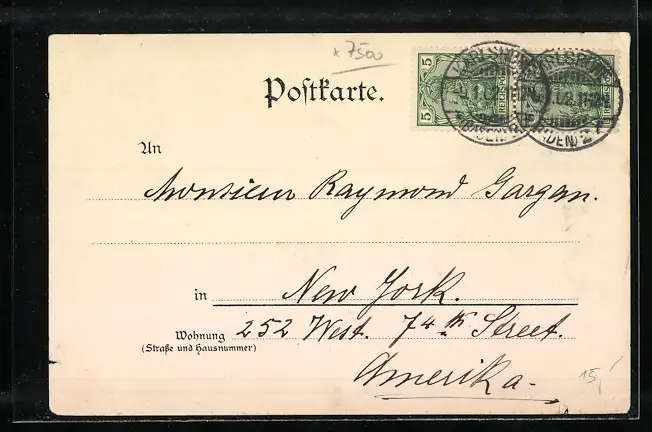 x 7500
Postkarte.
5
5
REICHSPOST
An
Monsieur Raymond Gargan.
in New York.
Wohnung 252 West. 74th Street.
(Straße und Hausnummer)
Amerika -
15,